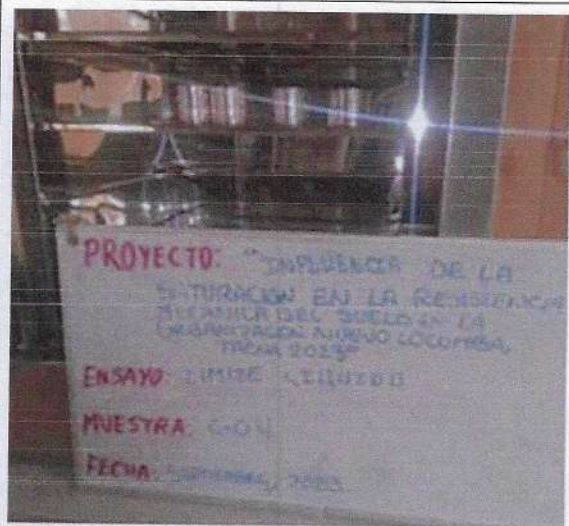 PROYECTO: "INFLUENCIA DE LA
SATURACION EN LA RESISTENCIA
MECANICA DEL SUELO EN LA
URBANIZACION NUEVO LOCUMBA,
TACNA 2023"
ENSAYO: LIMITE LIQUIDO
MUESTRA: C-04
FECHA: 2023